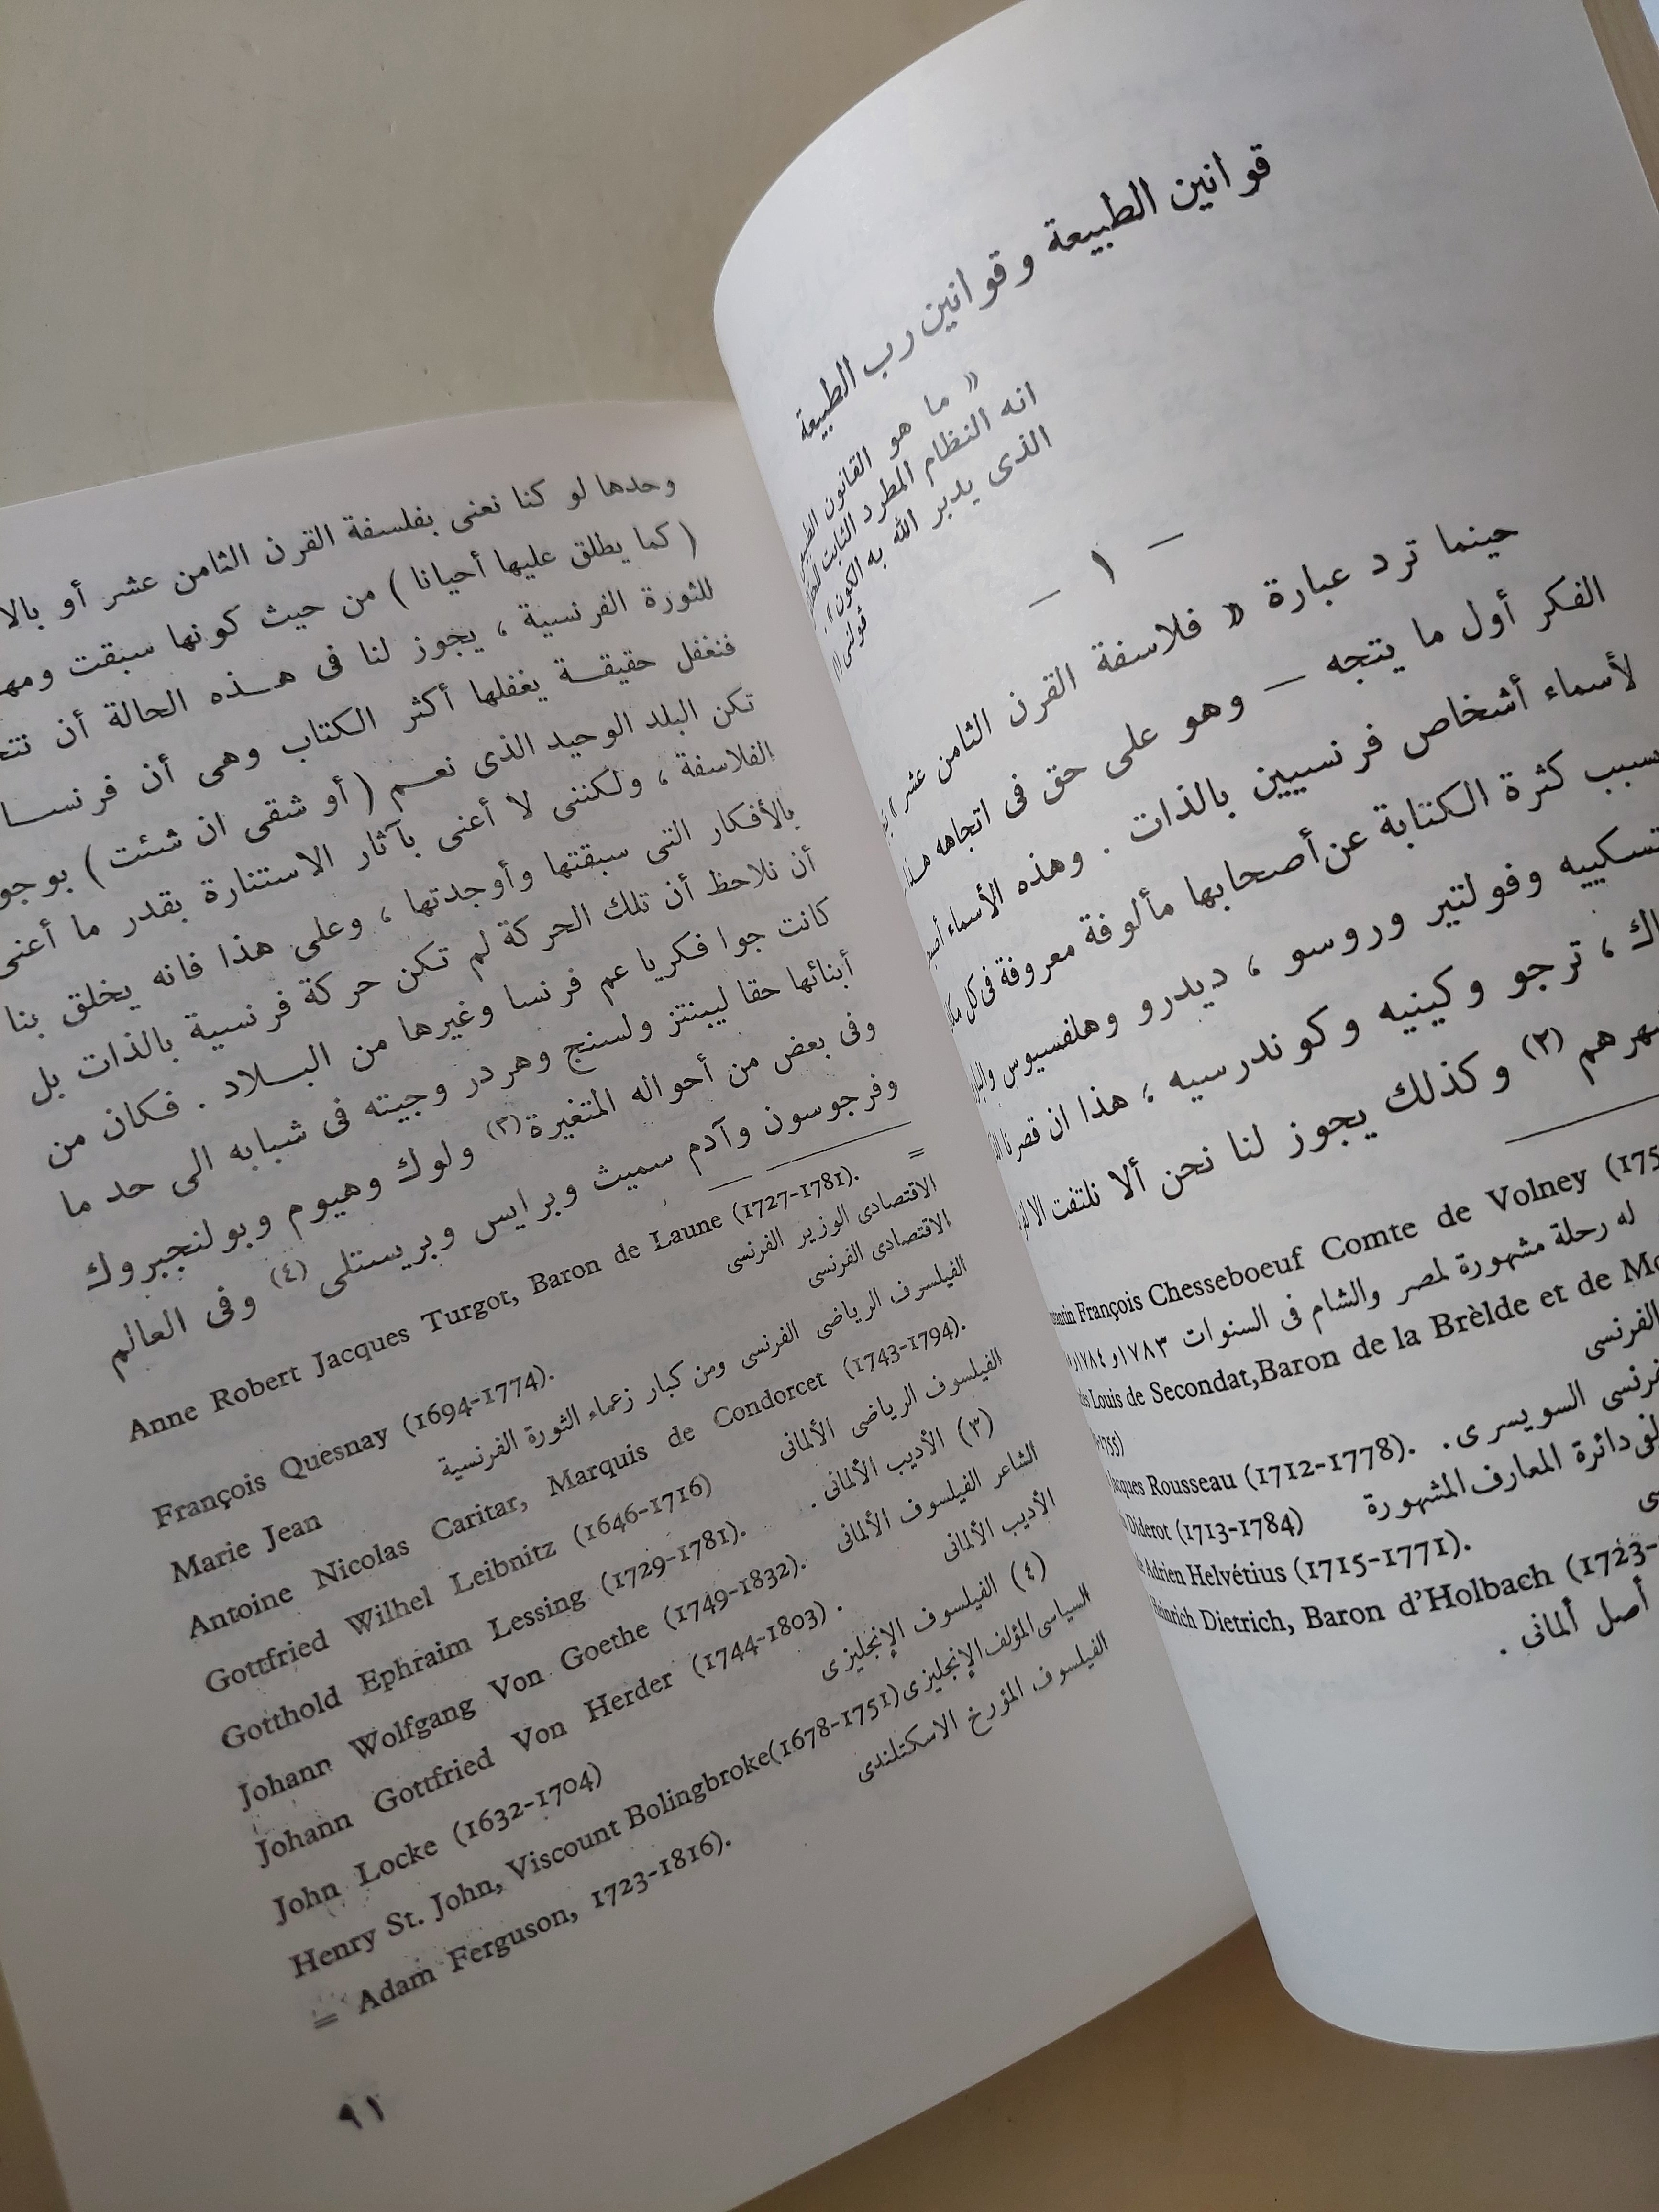 قوانين الطبيعة وقوانين رب الطبيعة
« ما هو القانون
انه النظام المطرد الثابت
الذى يدبر الله به الكون» .
— ١ —
حينما ترد عبارة « فلاسفة القرن الثامن عشر »
الفكر أول ما يتجه — وهو على حق فى اتجاهه
لأسماء أشخاص فرنسيين بالذات . وهذه الأسماء
سبب كثرة الكتابة عن أصحابها مألوفة معروفة فى كل
وفولتير وروسو ، ديدرو وهلفسيوس
ترجو وكينيه وكوندرسيه ؛ هذا ان قصرنا
(٢) وكذلك يجوز لنا نحن ألا نلتفت الا
François Chesseboeuf Comte de Volney
له رحلة مشهورة لمصر والشام فى السنوات ١٧٨٣ و١٧٨٤
Louis de Secondat, Baron de la Brèlde et de
الفرنسى
1755)
السويسرى .
Jacques Rousseau (1712-1778).
دائرة المعارف المشهورة
Diderot (1713-1784)
Adrien Helvétius (1715-1771).
Heinrich Dietrich, Baron d'Holbach (1723-
أصل ألمانى .
وحدها لو كنا نعنى بفلسفة القرن الثامن عشر أو
( كما يطلق عليها أحيانا ) من حيث كونها سبقت
للثورة الفرنسية ، يجوز لنا فى هذه الحالة أن
فنغفل حقيقة يغفلها أكثر الكتاب وهى أن فرنسا
تكن البلد الوحيد الذى نعم ( أو شقى ان شئت )
الفلاسفة ، ولكننى لا أعنى بآثار الاستنارة بقدر ما أعنى
بالأفكار التى سبقتها وأوجدتها ، وعلى هذا فانه يخلق بنا
أن نلاحظ أن تلك الحركة لم تكن حركة فرنسية بالذات بل
كانت جوا فكريا عم فرنسا وغيرها من البلاد . فكان من
أبنائها حقا ليبنتز ولسنج وهردر وجيته فى شبابه الى حد ما
وفى بعض من أحواله المتغيرة (٣) ولوك وهيوم وبولنجبروك
وفرجوسون وآدم سميث وبرايس وبريستلى (٤) وفى العالم
=
Anne Robert Jacques Turgot, Baron de Laune (1727-1781).
الاقتصادى الوزير الفرنسى
الاقتصادى الفرنسى
François Quesnay (1694-1774).
الفيلسوف الرياضى الفرنسى ومن كبار زعماء الثورة الفرنسية
Marie Jean
Antoine Nicolas Caritar, Marquis de Condorcet (1743-1794).
الفيلسوف الرياضى الألمانى
Gottfried Wilhel Leibnitz (1646-1716)
(٣) الأديب الألمانى .
Gotthold Ephraim Lessing (1729-1781).
الشاعر الفيلسوف الألمانى
Johann Wolfgang Von Goethe (1749-1832).
الأديب الألمانى
Johann Gottfried Von Herder (1744-1803) .
(٤) الفيلسوف الإنجليزى
John Locke (1632-1704)
السياسى المؤلف الإنجليزى
Henry St. John, Viscount Bolingbroke (1678-1751)
الفيلسوف المؤرخ الاسكتلندى
= Adam Ferguson, 1723-1816).
٩١